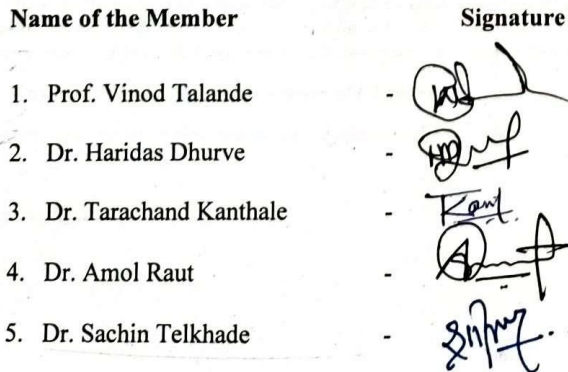 Name of the Member Signature
1. Prof. Vinod Talande -
2. Dr. Haridas Dhurve -
3. Dr. Tarachand Kanthale - Kant.
4. Dr. Amol Raut -
5. Dr. Sachin Telkhade -